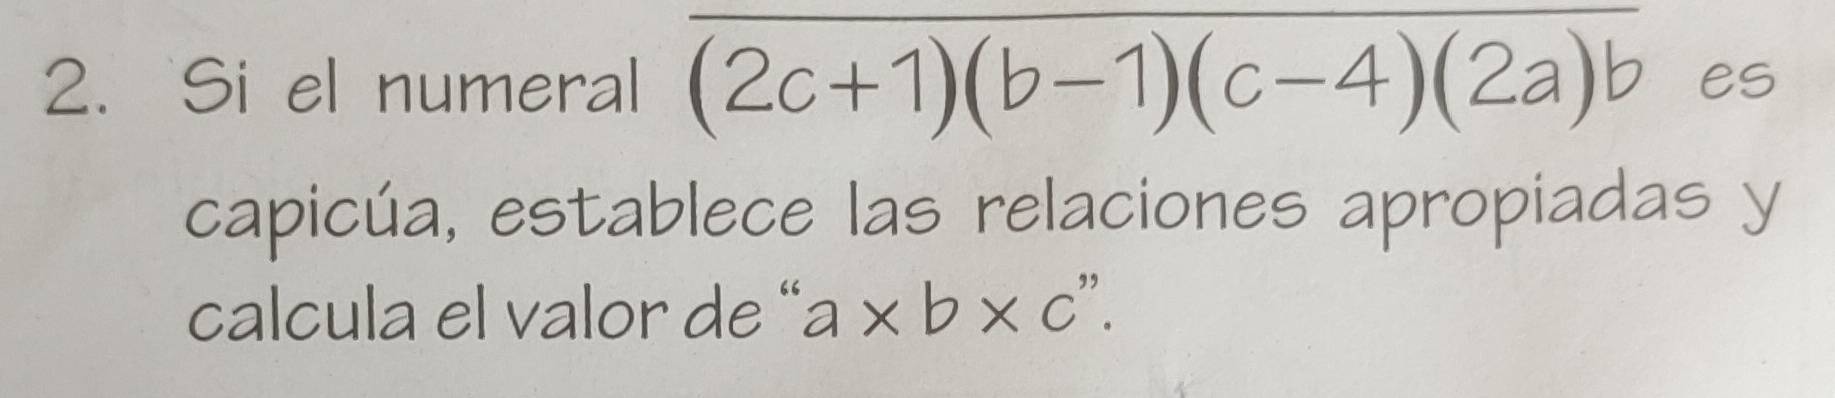 2. Si el numeral (2c+1)(b−1)(c−4)(2a)b es
capicúa, establece las relaciones apropiadas y
calcula el valor de “a × b × c”.